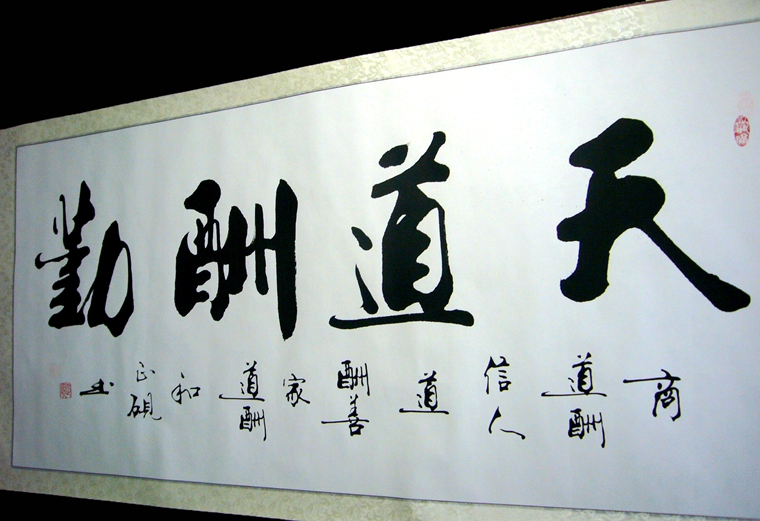 天道酬勤
商道酬信人道酬善家道酬和正砚书